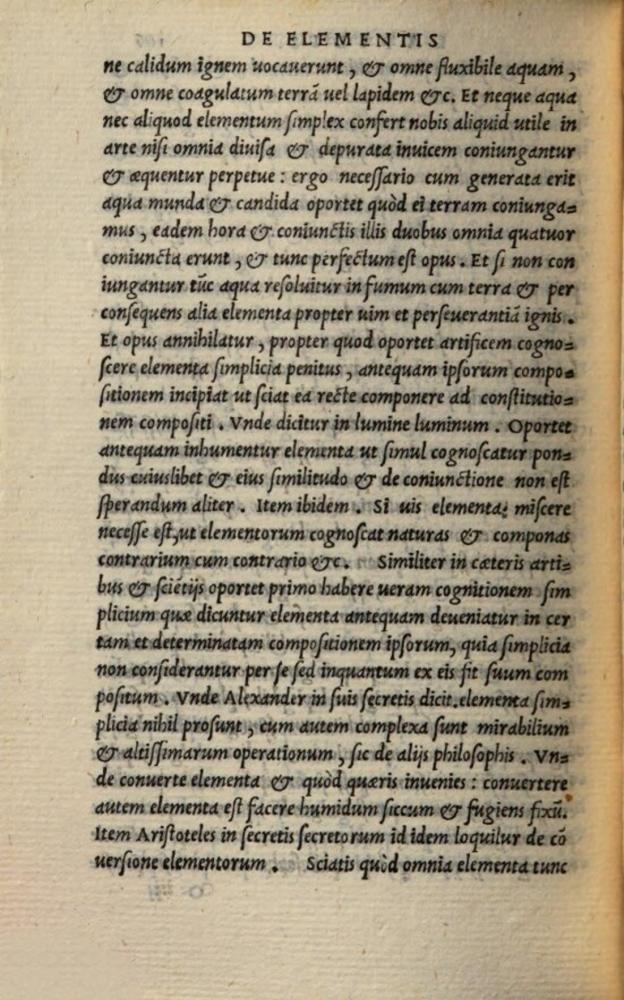 DE ELEMENTIS
ne calidum ignem uocauerunt, & omne fluxibile aquam,
& omne coagulatum terrā uel lapidem &c. Et neque aqua
nec aliquod elementum ſimplex confert nobis aliquid utile in
arte niſi omnia diuiſa & depurata inuicem coniungantur
& æquentur perpetue : ergo neceſſario cum generata erit
aqua munda & candida oportet quòd ei terram coniunga=
mus, eadem hora & coniunctis illis duobus omnia quatuor
coniuncta erunt, & tunc perfectum eſt opus. Et ſi non con
iungantur tūc aqua reſoluitur in fumum cum terra & per
conſequens alia elementa propter uim et perſeuerantiā ignis.
Et opus annihilatur, propter quod oportet artificem cogno=
ſcere elementa ſimplicia penitus, antequam ipſorum compo=
ſitionem incipiat ut ſciat ea recte componere ad conſtitutio=
nem compoſiti. Vnde dicitur in lumine luminum. Oportet
antequam inhumentur elementa ut ſimul cognoſcatur pon=
dus cuiuslibet & eius ſimilitudo & de coniunctione non eſt
ſperandum aliter. Item ibidem. Si uis elementa; miſcere
neceſſe eſt, ut elementorum cognoſcat naturas & componas
contrarium cum contrario &c. Similiter in cæteris arti=
bus & ſciētijs oportet primo habere ueram cognitionem ſim
plicium quæ dicuntur elementa antequam deueniatur in cer
tam et determinatam compoſitionem ipſorum, quia ſimplicia
non conſiderantur per ſe ſed inquantum ex eis fit ſuum com
poſitum. Vnde Alexander in ſuis ſecretis dicit. elementa ſim=
plicia nihil proſunt, cum autem complexa ſunt mirabilium
& altiſſimarum operationum, ſic de alijs philoſophis. Vn=
de conuerte elementa & quòd quæris inuenies : conuertere
autem elementa eſt facere humidum ſiccum & fugiens fixū.
Item Ariſtoteles in ſecretis ſecretorum id idem loquilur de cō
uerſione elementorum. Sciatis quòd omnia elementa tunc